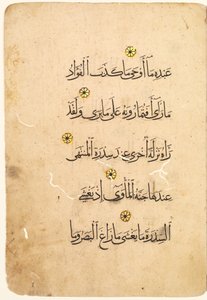 عبده ما أوحى ما كذب الفؤاد
ما رأى أفتمارونه على ما يرى ولقد
رآه نزلة أخرى عند سدرة المنتهى
عندها جنة المأوى إذ يغشى
السدرة ما يغشى ما زاغ البصر وما